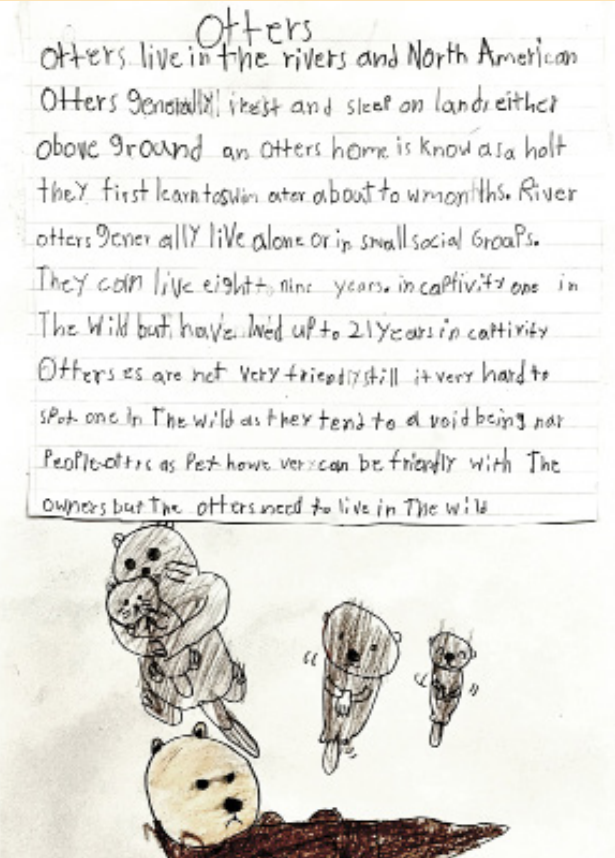 Otters
Otters live in the rivers and North American
Otters generally rest and sleep on land either
above ground an otters home is know as a holt
they first learn to swim ater about to wmonths. River
otters gener ally live alone or in small social Groaps.
They can live eight to nine years. in captivity one in
The Wild but have lived up to 21 years in captivity
Otters es are not very friendly still it very hard to
spot one in The wild as they tend to a void being nar
People as Pet howe ver can be friendly with The
owners but The otters need to live in The wild